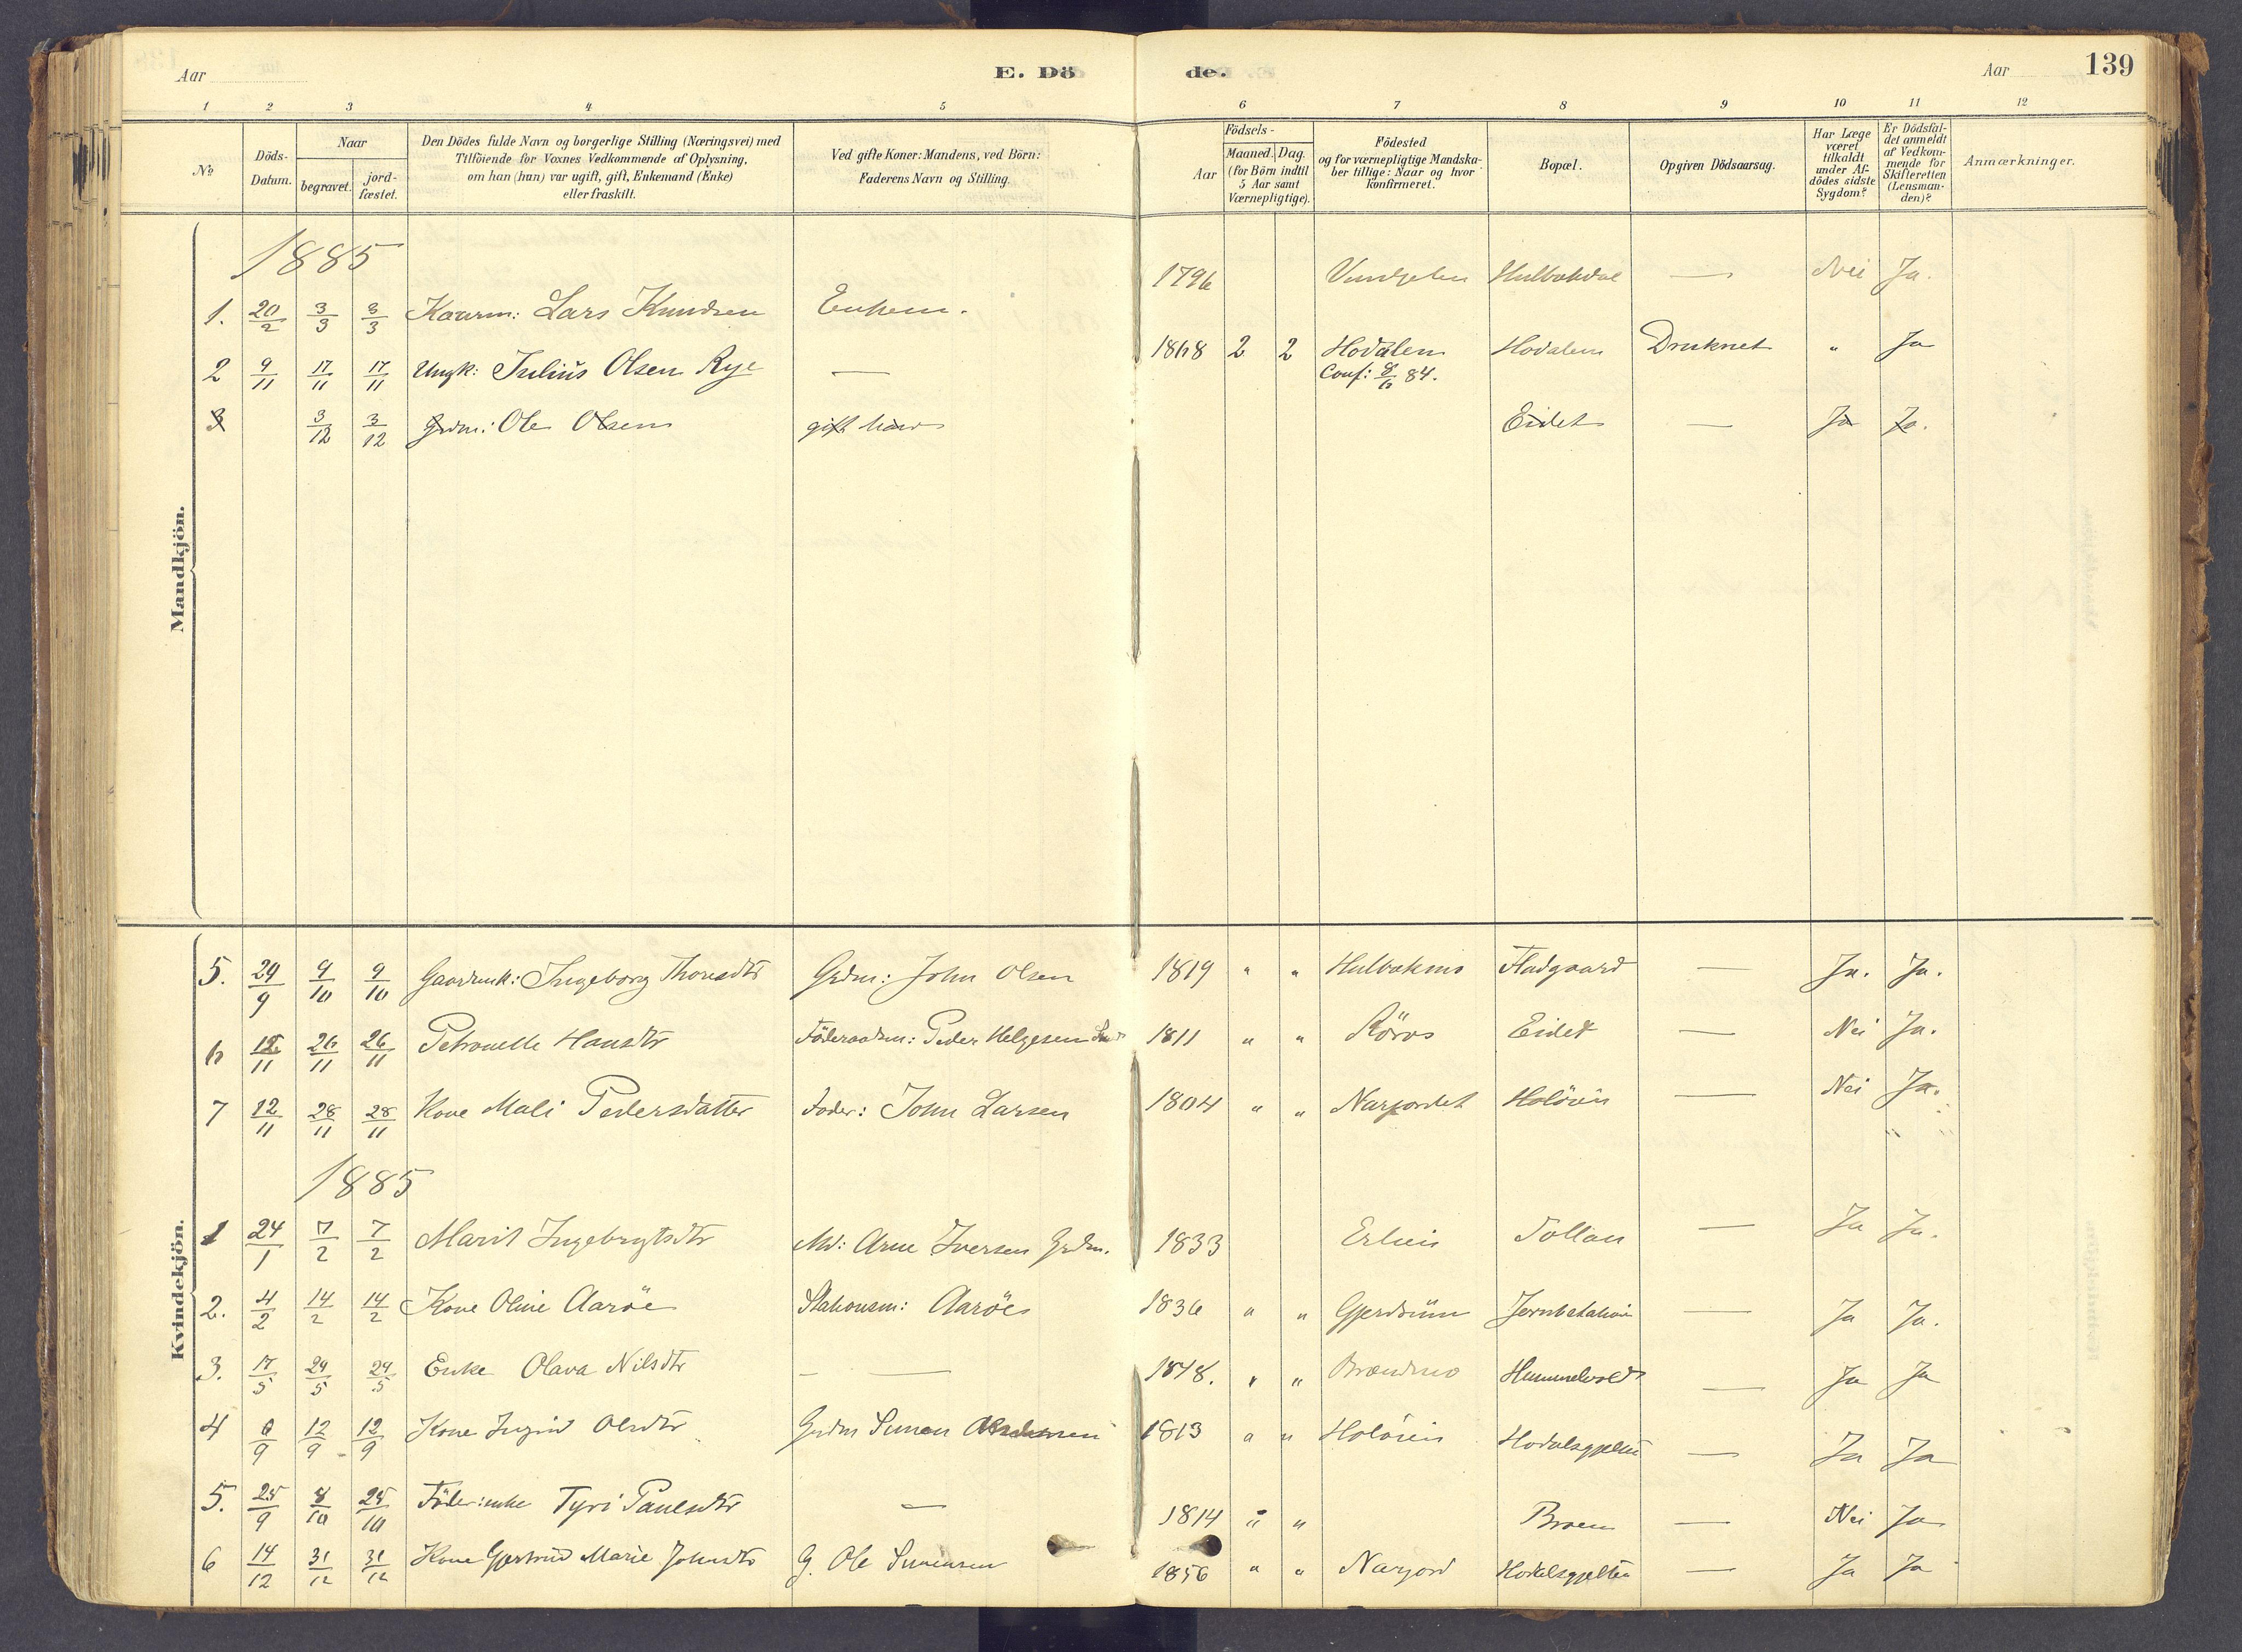 Aar E. Dö de. Aar 139
1 2 3 4 5 6 7 8 9 10 11 12
№
Döds-Datum.
Naar
begravet.
jord-fæstet.
Den Dödes fulde Navn og borgerlige Stilling (Næringsvei) med
Tilföiende for Voxnes Vedkommende af Oplysning,
om han (hun) var ugift, gift, Enkemand (Enke)
eller fraskilt.
Ved gifte Koner: Mandens, ved Börn:
Faderens Navn og Stilling.
Födsels-
Aar
Maaned. Dag.
(for Börn indtil
5 Aar samt
Værnepligtige).
Födested
og for værnepligtige Mandska-
ber tillige: Naar og hvor
konfirmeret.
Bopæl.
Opgiven Dödsaarsag.
Har Læge
været
tilkaldt
under Af-
dödes sidste
Sygdom?
Er Dödsfal-
det anmeldt
af Vedkom-
mende for
Skifteretten
(Lensman-
den)?
Anmærkninger.
Mandkjön.
1885
1. 20/2 3/3 3/3 Kaarm: Lars Knudsen Enkem. 1796 Hulbakdal — Nei Ja.
2 9/11 17/11 17/11 Ungk: Julius Olsen Rye — 1868 2 2 Hodalen Hodalen Druknet " Ja
Conf: 8/6 84.
3 3/12 3/12 Grdm: Ole Olsen gift Eidet — Ja Ja.
Kvindekjön.
5. 29/9 9/10 9/10 Gaardmk: Ingeborg Thoresdtr Grdm: John Olsen 1819 " " Hulbakmo Fladgaard — Ja. Ja.
6 12/11 26/11 26/11 Petronelle Hansdtr Föderaadsm: Peder Helgesen 1811 " " Röros Eidet — Nei Ja.
7 12/11 28/11 28/11 Kone Mali Pedersdatter Foder: John Larsen 1804 " " Narjordet Holöien — Nei Ja.
1885
1 24/1 7/2 7/2 Marit Ingebrigtsdtr Md: Arne Iversen Grdm. 1833 Erlien Tollan — Ja Ja.
2. 4/2 14/2 14/2 Kone Oline Aaröe Stationsm: Aaröes 1836 " " Gjerdrum Jernbstation — Ja Ja.
3. 17/5 29/5 29/5 Enke Olava Nilsdtr — — 1848. " " Brændmo Hummelvold — Ja Ja
4 6/9 12/9 12/9 Kone Ingrid Olsdtr Grdm Simen 1813 " " Holöien Hodalsgjelten — Ja Ja
5. 25/9 8/10 25/10 Föder:enke Tyri Paulsdtr — 1814 " " Broen — Nei Ja
6 14/12 31/12 31/12 Kone Gjertrud Marie Johnsdtr G. Ole Simensen 1856 " " Narjord Hodalsgjelten — Ja Ja